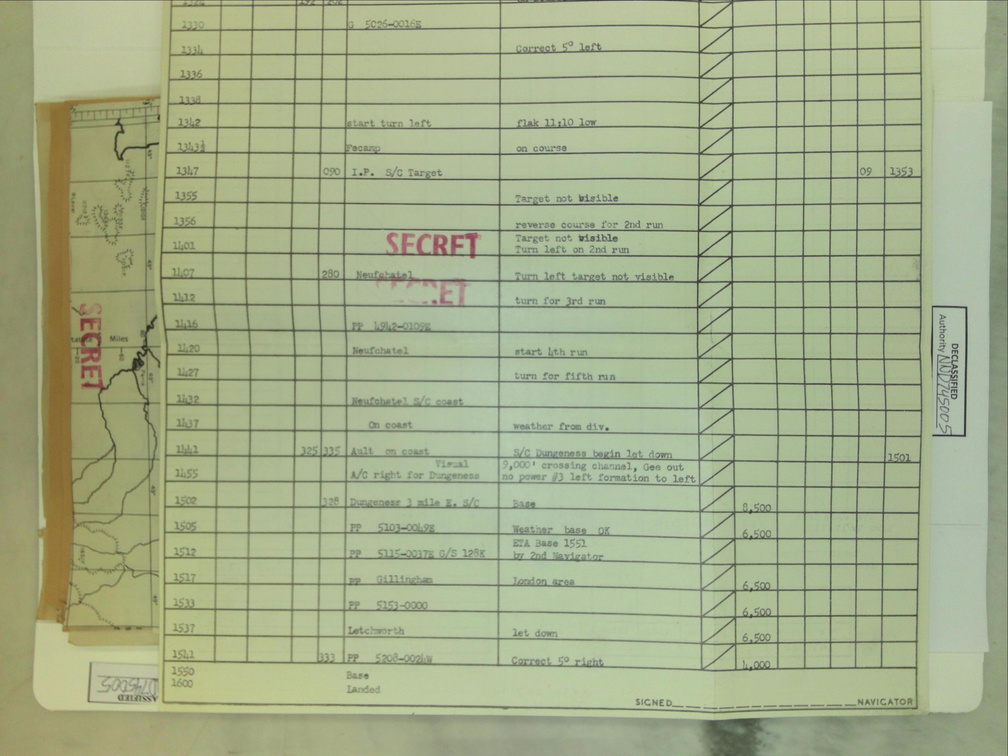 1330 G 5026-0016E
1334 Correct 5° left
1336
1338
1342 start turn left flak 11:10 low
1343½ Fecamp on course
1347 090 I.P. S/C Target 09 1353
1355 Target not visible
1356 reverse course for 2nd run
1401 Target not visible
Turn left on 2nd run
SECRET
1407 280 Neufchatel Turn left target not visible
SECRET
1412 turn for 3rd run
1416 PP 4942-0109E
1420 Neufchatel start 4th run
1427 turn for fifth run
1432 Neufchatel S/C coast
1437 On coast weather from div.
1441 325 335 Ault on coast S/C Dungeness begin let down 1501
Visual 9,000' crossing channel, Gee out
1455 A/C right for Dungeness no power #3 left formation to left
1502 328 Dungeness 3 mile E. S/C Base 8,500
1505 PP 5103-0049E Weather base OK 6,500
ETA Base 1551
1512 PP 5115-0037E G/S 128K by 2nd Navigator
1517 PP Gillingham London area 6,500
1533 PP 5153-0000 6,500
1537 Letchworth let down 6,500
1541 333 PP 5208-0024W Correct 5° right 4,000
1550 Base
1600 Landed
SIGNED NAVIGATOR
SECRET
Miles
DECLASSIFIED
Authority NND745005